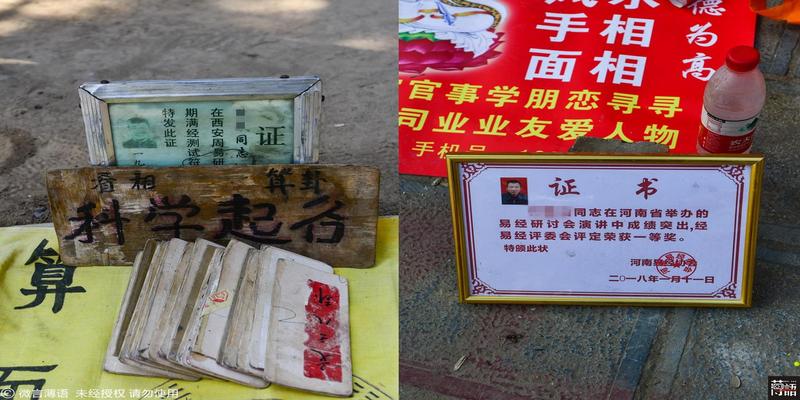 证
同志
在西安周易研
期满经测试符
特发此证
看相 算卦
科学起名
算
面
© 微言薄语 未经授权 请勿使用
德为高
手相
面相
官事学朋恋寻寻
司业业友爱人物
手机号
证书
同志在河南省举办的
易经研讨会演讲中成绩突出,经
易经评委会评定荣获一等奖。
特颁此状
河南易经协会
二〇一八年一月十一日
薄語